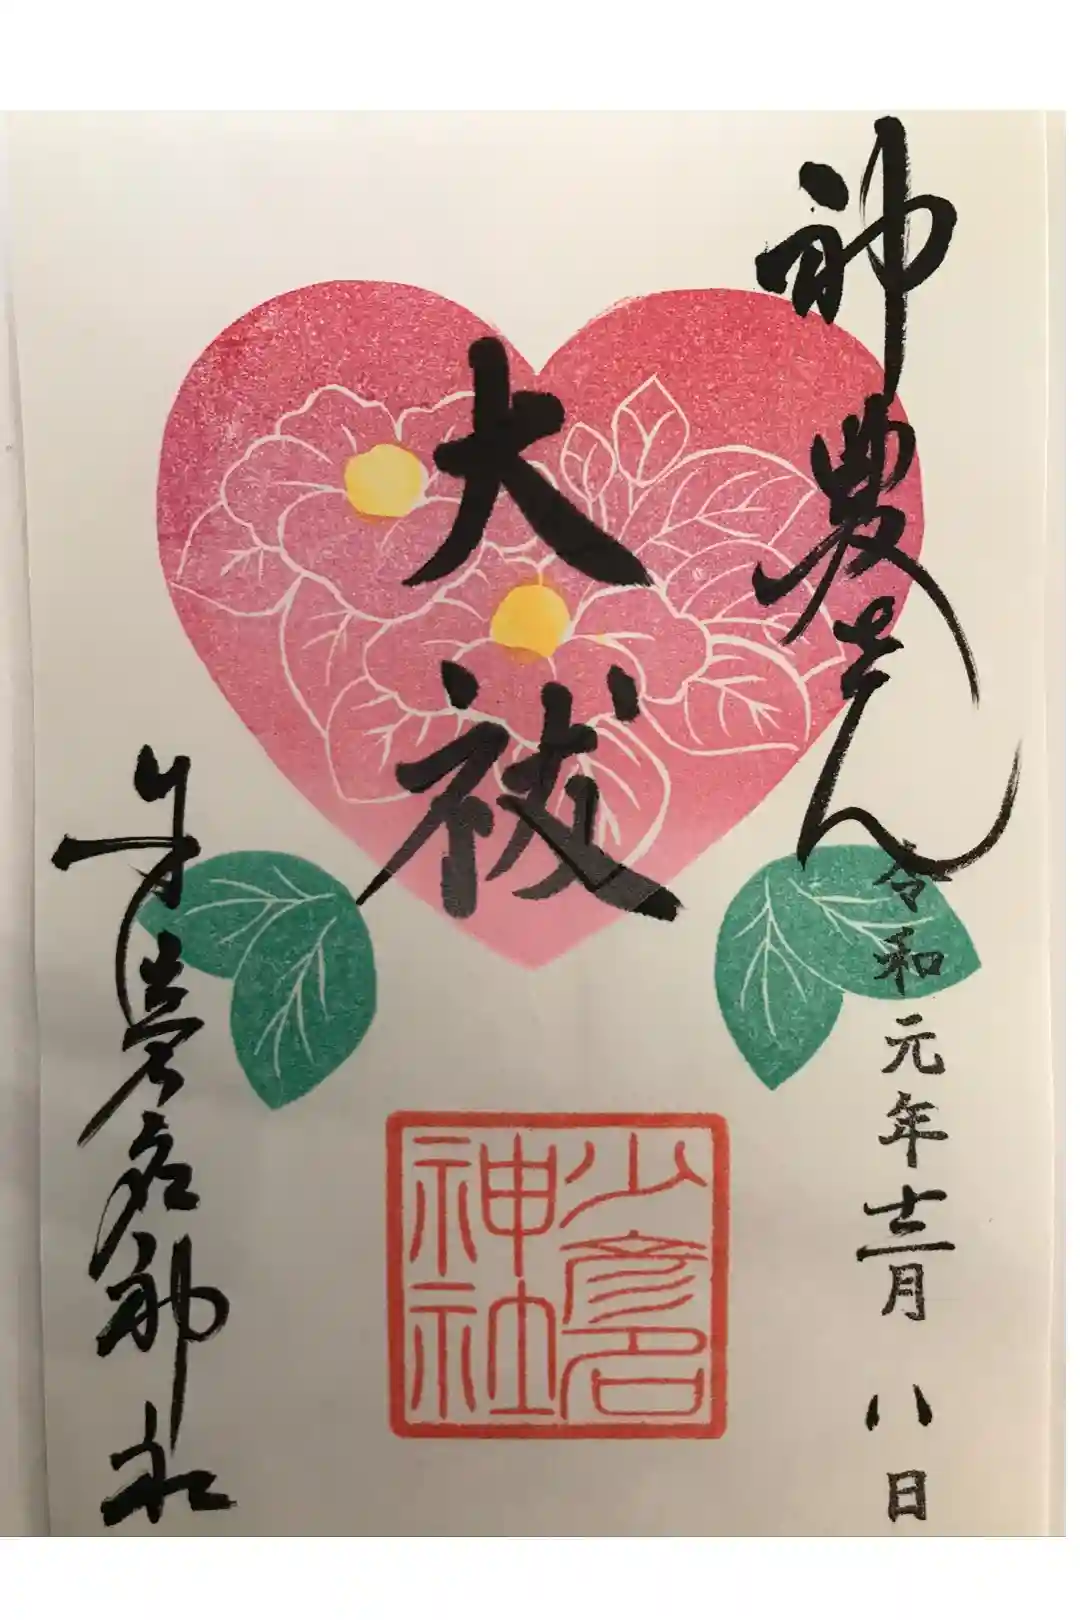 神農さん
令和元年十二月八日
大祓
少彦名
神社
少彦名神社